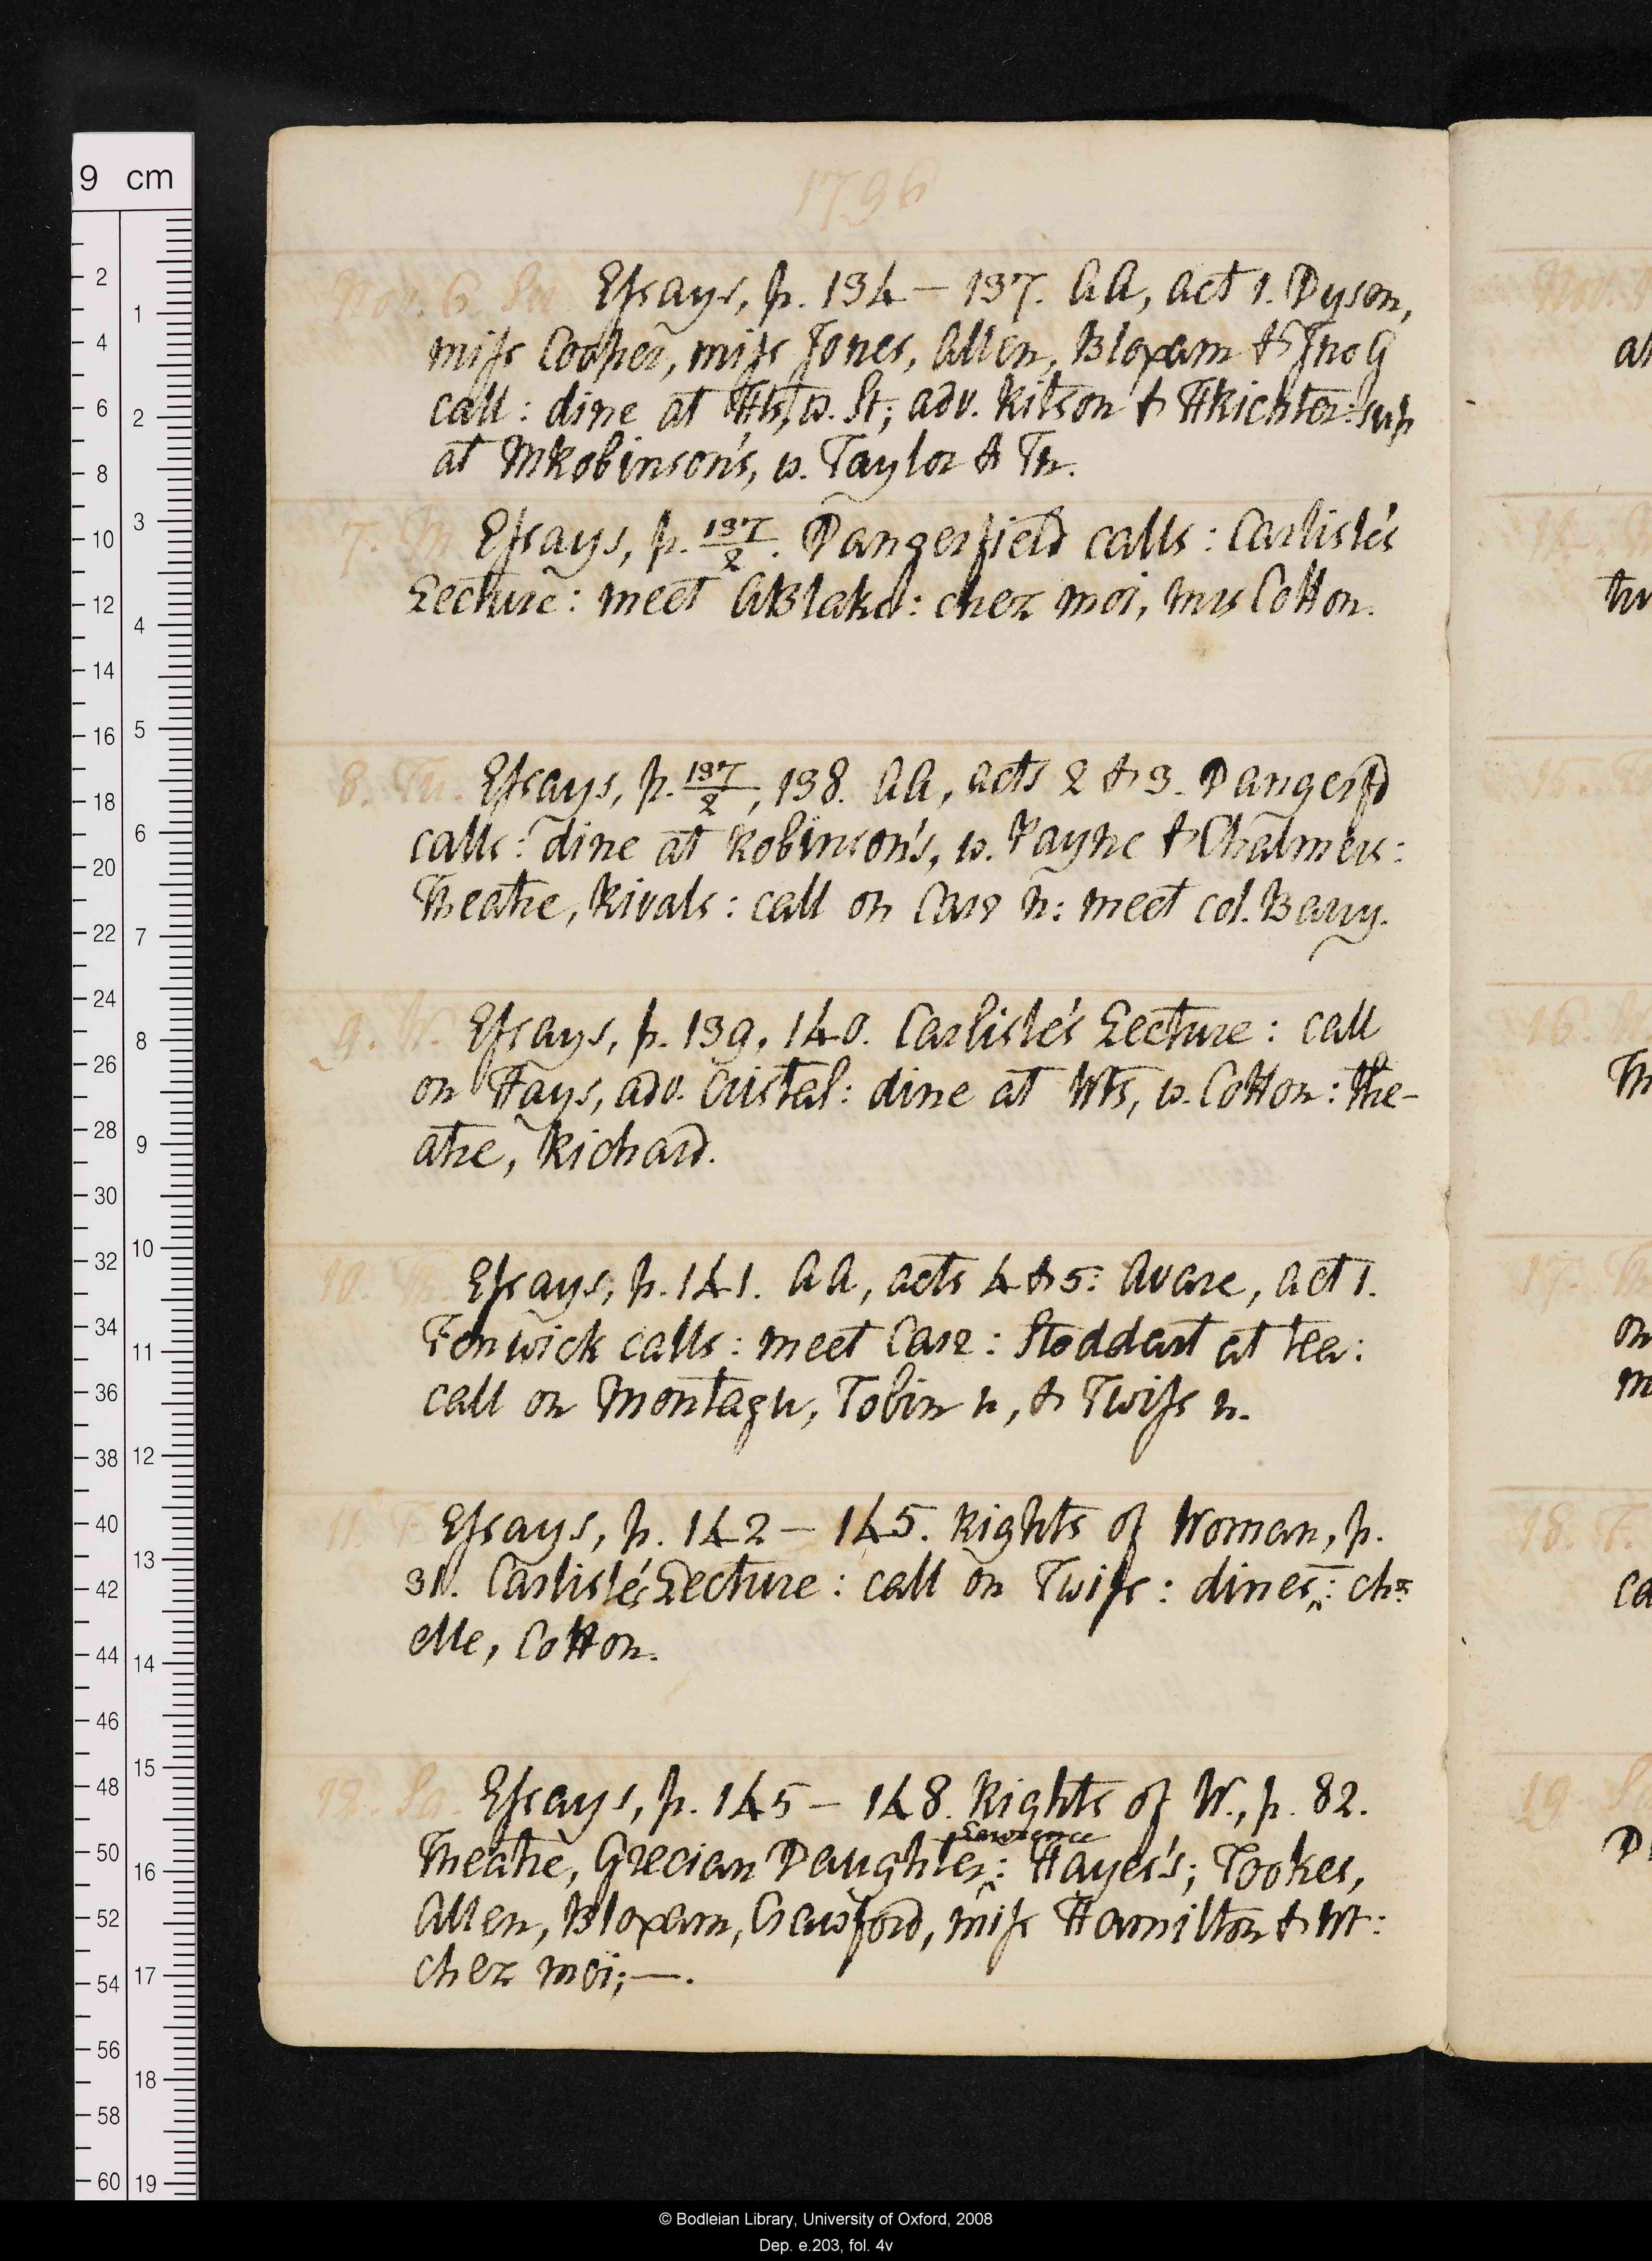 1796
Nov. 6. Su. Eſsays, p. 134 – 137. AA, act 1. Dyson,
miſs Cooper, miſs Jones, Allen, Bloxam & Jno G
call: dine at Hts, w. St; adv. Ritson & HRichter: sup
at MRobinson's, w. Taylor & Th.
7. M. Eſsays, p. 137/2. Dangerfield calls: Carlisle's
Lecture: meet ABlake: chez moi, mrs Cotton.
8. Tu. Eſsays, p. 137/2, 138. AA, acts 2 & 3. Dangerfd
calls: dine at Robinson's, w. Payne & Chalmers:
Theatre, Rivals: call on Carr n: meet col. Barry.
9. W. Eſsays, p. 139, 140. Carlisle's Lecture: call
on Hays, adv. Cristal: dine at Wt's, w. Cotton: the-
atre, Richard.
10. Th. Eſsays, p. 141. AA, acts 4 & 5: Avare, act 1.
Fenwick calls: meet Carr: Stoddart at tea:
call on Montagu, Tobin n, & Twiſs n.
11. F. Eſsays, p. 142 – 145. Rights of Woman, p.
31. Carlisle's Lecture: call on Twiſs: dines‸: chz
elle, Cotton.
12. Sa. Eſsays, p. 145 – 148. Rights of W., p. 82.
Lawrence
Theatre, Grecian Daughter‸: Hayes's; Tookes,
Allen, Bloxam, Crawford, miſs Hamilton & Wt:
chez moi; —.
9 cm
2
4
6
8
10
12
14
16
18
20
22
24
26
28
30
32
34
36
38
40
42
44
46
48
50
52
54
56
58
60
1
2
3
4
5
6
7
8
9
10
11
12
13
14
15
16
17
18
19
16.
17.
18. F.
19.
© Bodleian Library, University of Oxford, 2008
Dep. e.203, fol. 4v